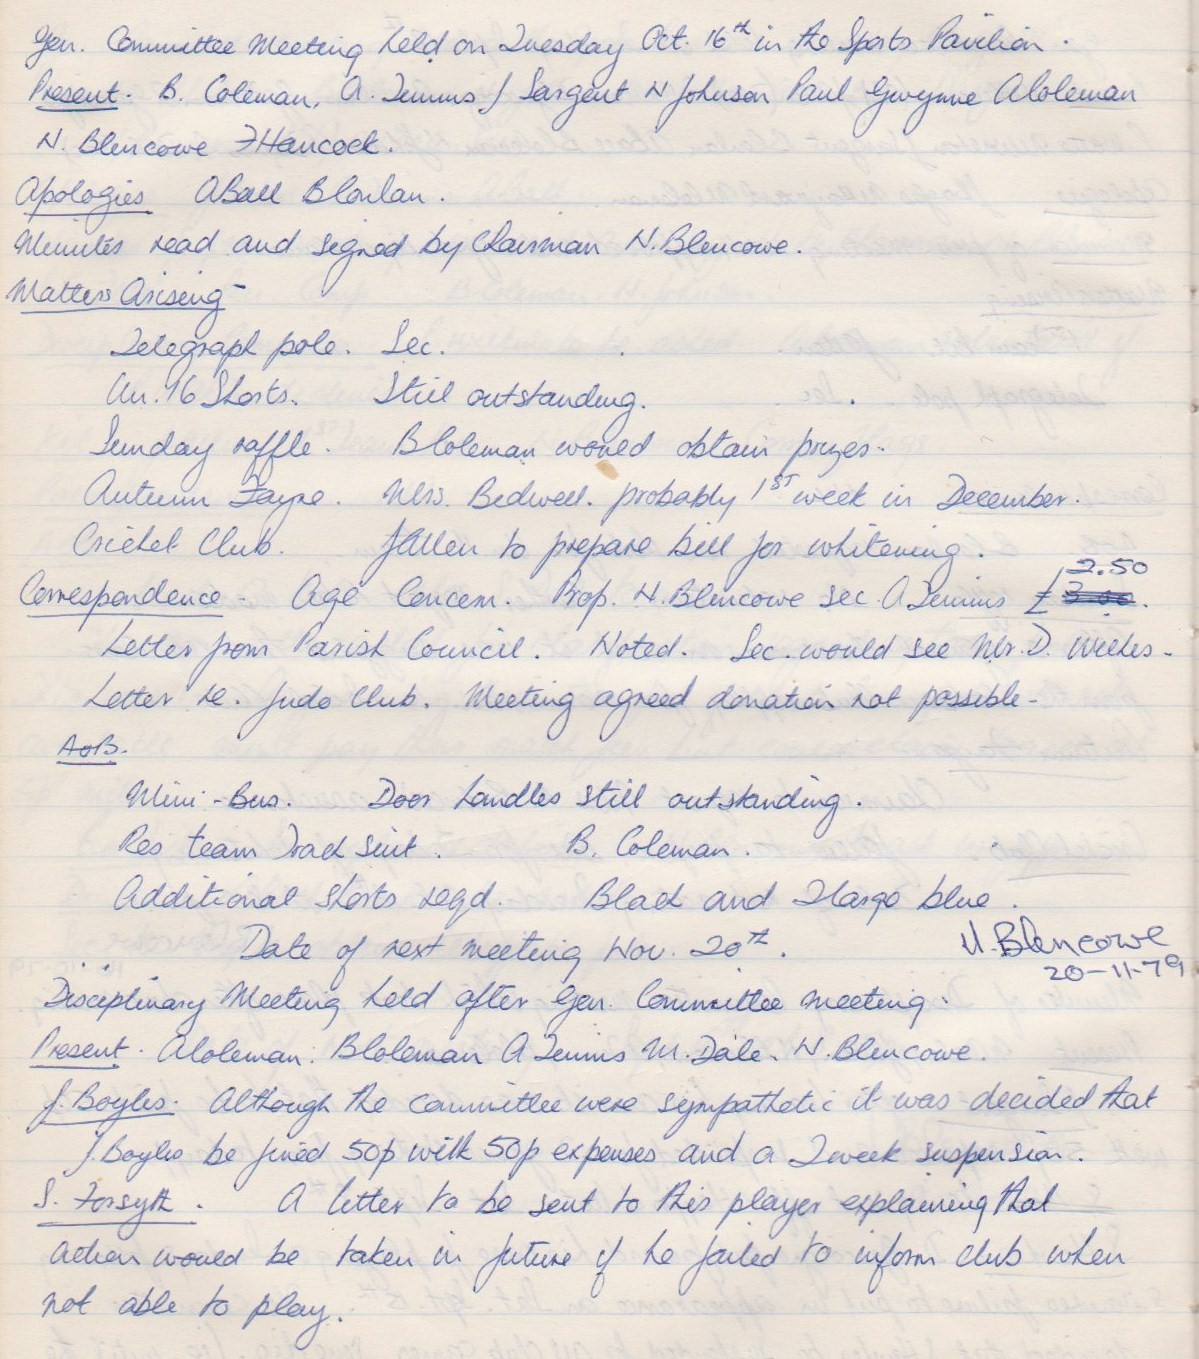 Gen. Committee Meeting held on Tuesday Oct. 16th in the Sports Pavilion.
Present. B. Coleman, A. Timms J Sargent N Johnson Paul Gwynne A Coleman
N. Blencowe F Hancock.
Apologies A Ball B Conlan.
Minutes read and signed by Chairman N. Blencowe.
Matters Arising -
Telegraph pole. Sec.
Un. 16 Shorts. Still outstanding.
Sunday raffle. B Coleman would obtain prizes.
Autumn Fayre. Mrs. Bedwell. probably 1ST week in December.
Cricket Club. J Allen to prepare bill for whitening.
2.50
Correspondence. Age Concern. Prop. N. Blencowe sec. A Timms £ 3.00.
Letter from Parish Council. Noted. Sec. would see Mr. D.
Letter re. Judo Club. Meeting agreed donation not possible.
AOB.
Mini-Bus. Door handles still outstanding.
Res team Track Suit. B. Coleman.
Additional shorts reqd. Black and Large blue.
Date of next meeting Nov. 20th.
N. Blencowe
20-11-79
Disciplinary Meeting held after Gen. Committee meeting.
Present. A Coleman. B Coleman A Timms M. Dale. N. Blencowe.
J. Boyles. Although the committee were sympathetic it was decided that
J. Boyles be fined 50p with 50p expenses and a 2 week suspension.
S. Forsyth. A letter to be sent to this player explaining that
action would be taken in future if he failed to inform club when
not able to play.